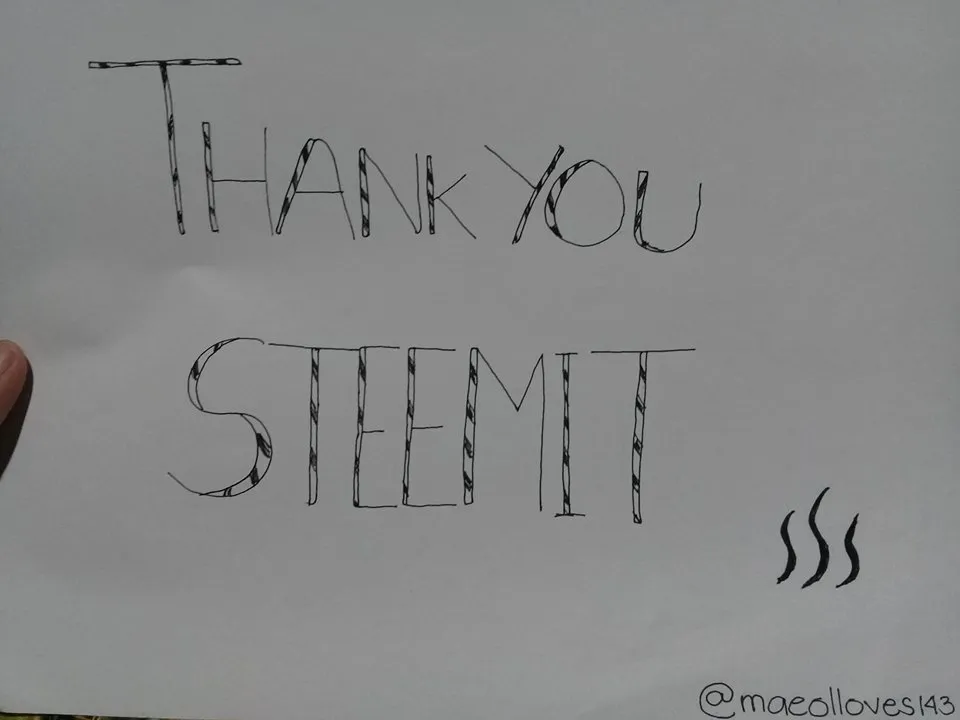 THANK YOU
STEEMIT
@maeolloves143